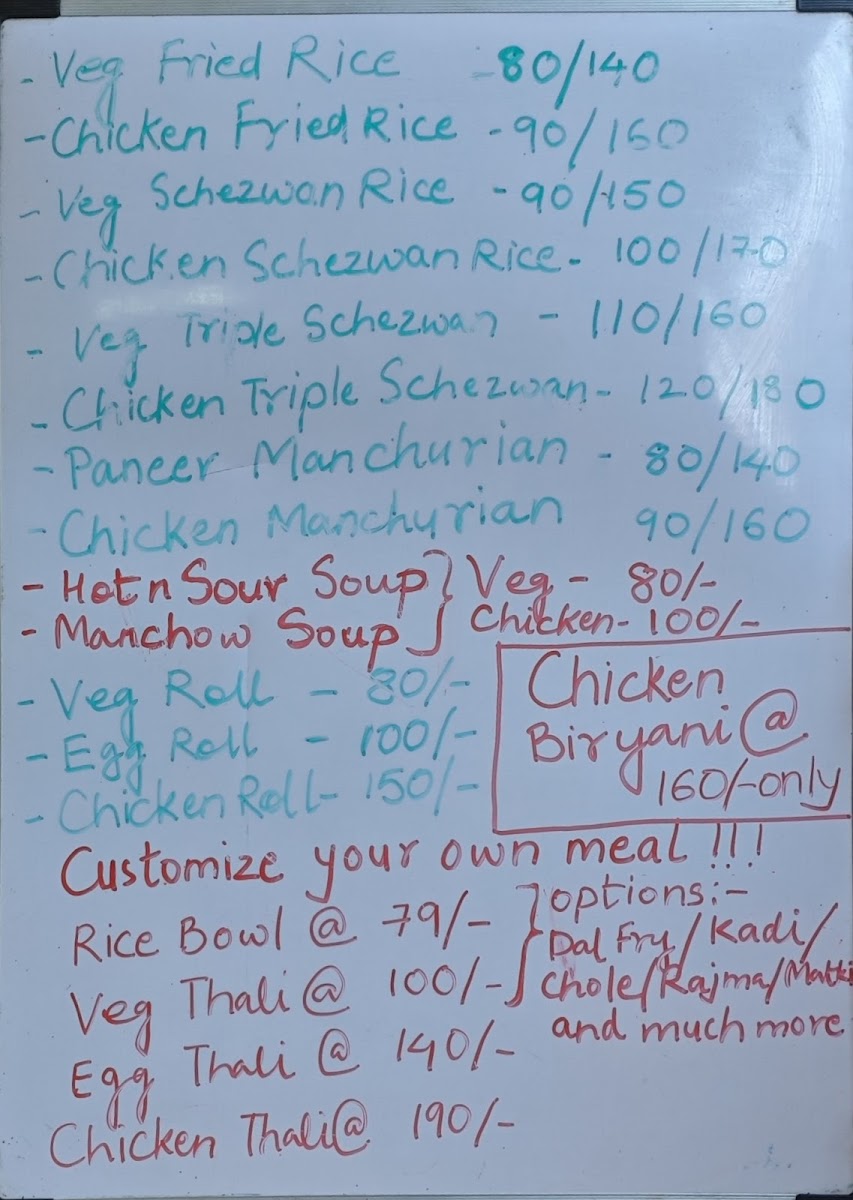 - Veg Fried Rice - 80/140
- Chicken Fried Rice - 90/160
- Veg Schezwan Rice - 90/150
- Chicken Schezwan Rice - 100/170
- Veg Triple Schezwan - 110/160
- Chicken Triple Schezwan - 120/180
- Paneer Manchurian - 80/140
- Chicken Manchurian 90/160
- Hot n Sour Soup } Veg - 80/-
- Manchow Soup } Chicken - 100/-
- Veg Roll - 80/-
- Egg Roll - 100/-
- Chicken Roll - 150/-
Chicken
Biryani @
160/- only
Customize your own meal !!!
Rice Bowl @ 79/-
Veg Thali @ 100/-
Egg Thali @ 140/-
Chicken Thali @ 190/-
options:-
Dal Fry/Kadi/
Chole/Rajma/Matki
and much more